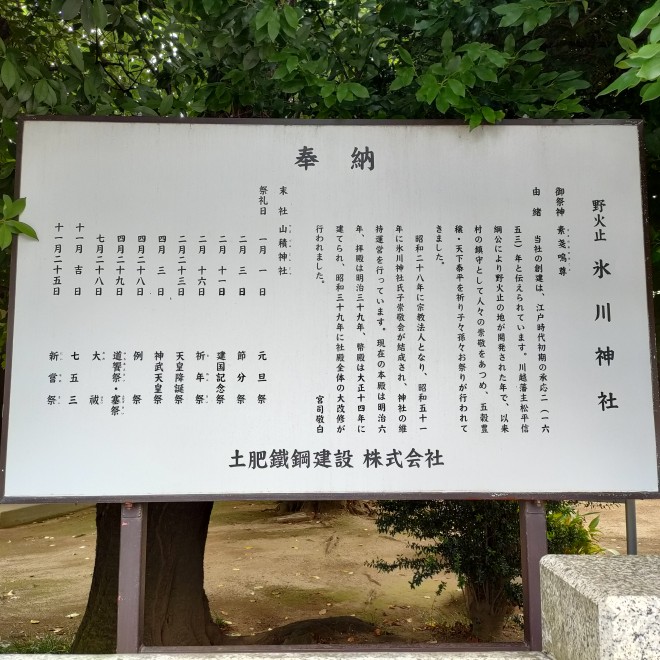 奉納
野火止 氷川神社
御祭神 素戔嗚尊
由緒 当社の創建は、江戸時代初期の承応二(一六
五三)年と伝えられています。川越藩主松平信
綱公により野火止の地が開発された年で、以来
村の鎮守として人々の崇敬をあつめ、五穀豊
穣・天下泰平を祈り子々孫々お祭りが行われて
きました。
昭和二十八年に宗教法人となり、昭和五十一
年に氷川神社氏子崇敬会が結成され、神社の維
持運営を行っています。現在の本殿は明治六
年、拝殿は明治三十九年、幣殿は大正十四年に
建てられ、昭和三十九年に社殿全体の大改修が
行われました。 宮司敬白
末社 山積神社
祭礼日 一月一日 元旦祭
二月三日 節分祭
二月十一日 建国記念祭
二月十六日 祈年祭
二月二十三日 天皇降誕祭
四月三日 神武天皇祭
四月二十八日 例祭
四月二十九日 道饗祭・塞祭
七月二十八日 大祓
十一月吉日 七五三
十一月二十五日 新嘗祭
土肥鐵鋼建設 株式会社